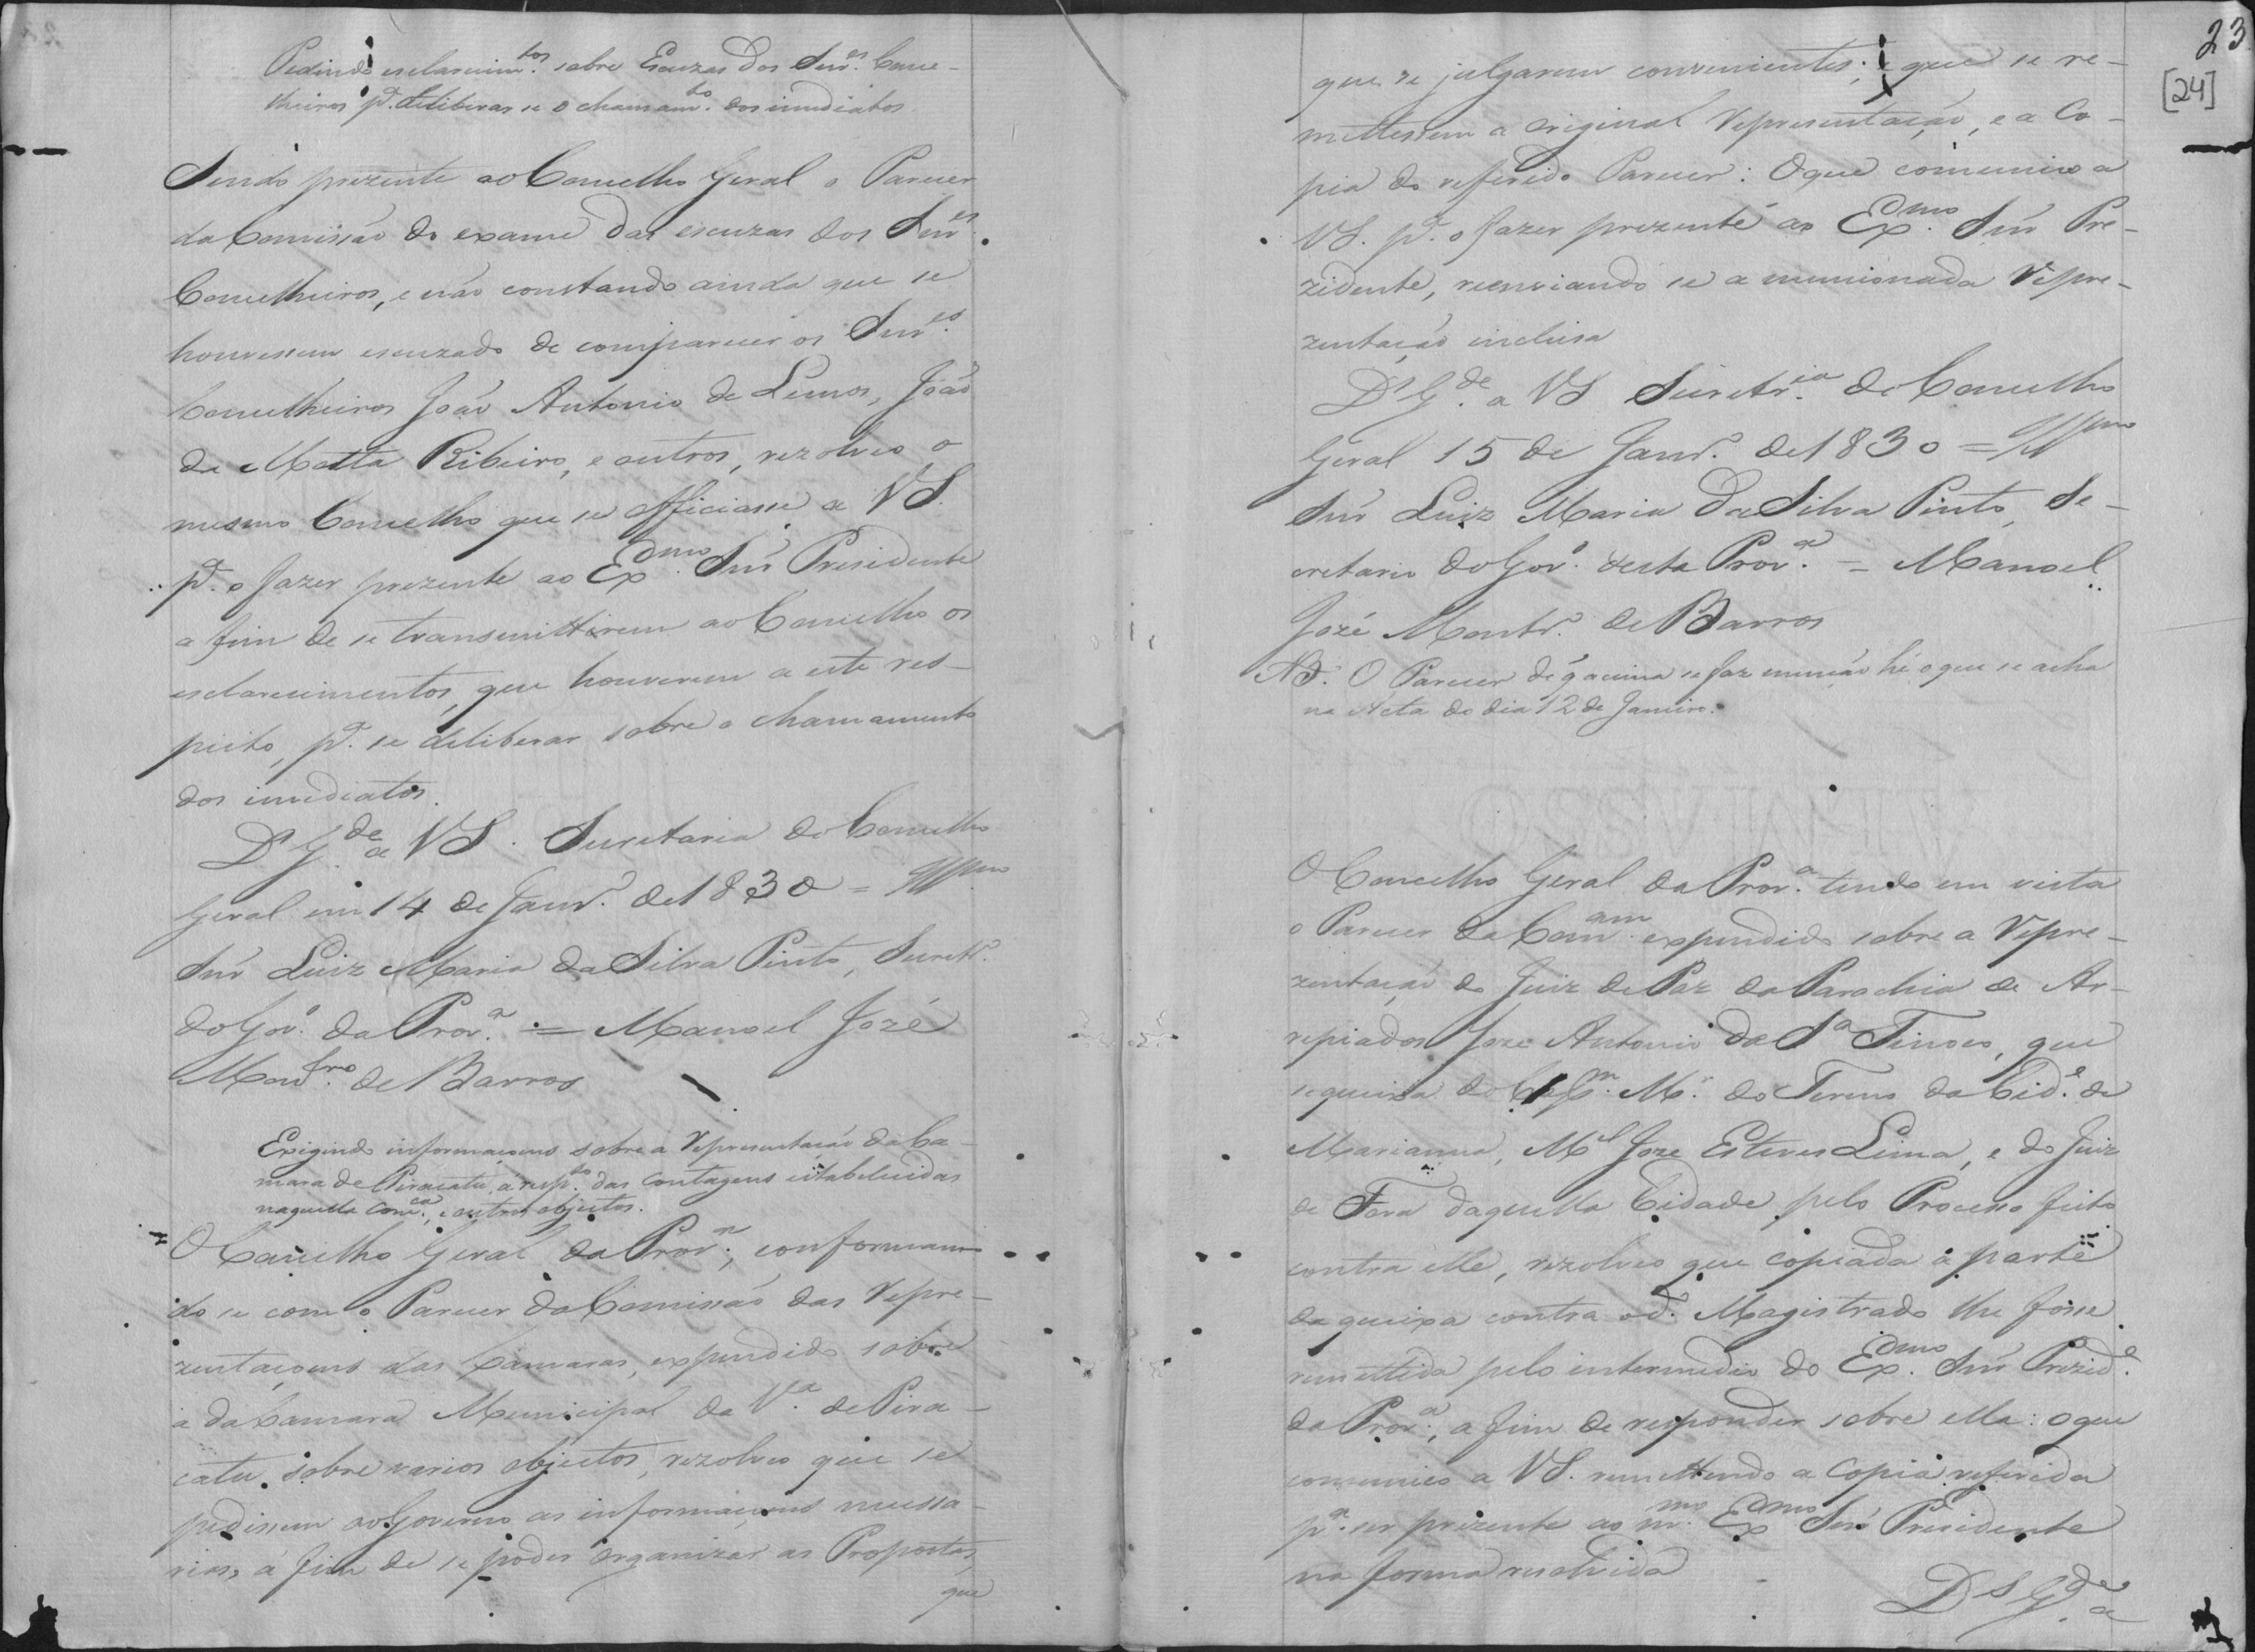 Pedindo esclarecim.tos sobre Escuzas dos Snr.es Conce-
lheiros p.a deliberar se o chamam.to dos immediatos.
Sendo prezente ao Concelho Geral o Parecer
da Comissão do exame das escuzas dos Snr.es
Concelheiros, e não constando ainda que se
houvessem escuzado de comparecer os Snr.es
Concelheiros João Antonio de Lemos, João
da Motta Ribeiro, e outros, rezolveo o
mesmo Concelho que se officiasse a VS.
p.a o fazer prezente ao Ex.mo Snr Presidente
a fim de se transmittirem ao Concelho os
esclarecimentos, que houverem a este res-
peito, p.a se deliberar sobre o chamamento
dos immediatos.
D.s G.de a VS. Secretaria do Concelho
Geral em 14 de Janr.o de 1830 = Ill.mo
Snr Luiz Maria da Silva Pinto, Secretr.o
do Gov.o da Prov.a = Manoel José
Montr.o de Barros
Exigindo informaçoens sobre a Representação da Ca-
mara de Piracatu, a resp.to das Contagens estabelecidas
naquella Com.ca, e outros objectos.
O Concelho Geral da Prov.a, conforman-
do se com o Parecer da Comissão das Repre-
zentaçoens das Camaras, expendido sobre
a da Camara Municipal da V.a de Pira-
catu, sobre varios objectos, rezolveo que se
pedissem ao Governo as informaçoens necessa-
rias, a fim de se poder organizar as Propostas,
que
23
[24]
que se julgarem convenientes; e que se re-
mettessem a original Representação, e a Co-
pia do referido Parecer: O que comunico a
VS. p.a o fazer prezente ao Ex.mo Snr Pre-
zidente, reenviando se a mencionada Repre-
zentação incluza
D.s G.de a VS Secretr.ia do Concelho
Geral 15 de Janr.o de 1830 = Ill.mo
Snr Luiz Maria da Silva Pinto, Se-
cretario do Gov.o desta Prov.a = Manoel
José Montr.o de Barros
NB. O Parecer de q̃ acima se faz menção hé o que se acha
na Acta do dia 12 de Janeiro.
O Concelho Geral da Prov.a tendo em vista
o Parecer da Com.am expendido sobre a Repre-
zentação do Juiz de Paz da Parochia de Ar-
repiados Joze Antonio da S.a Tinoco, que
se queixa do Cap.m M.r do Termo da Cid.e de
Marianna, M.el Joze Esteves Lima, e do Juiz
de Fora daquella Cidade pelo Processo feito
contra elle, rezolveo que copiada a parte
da queixa contra o d.o Magistrado lhe fosse
remettida pelo intermedio do Ex.mo Snr Prezid.e
da Prov.a, a fim de responder sobre ella: o que
comunico a VS. remettendo a Copia referida
p.a ser prezente ao m.mo Ex.mo Snr Presidente
na forma resolvida
D.s G.de a